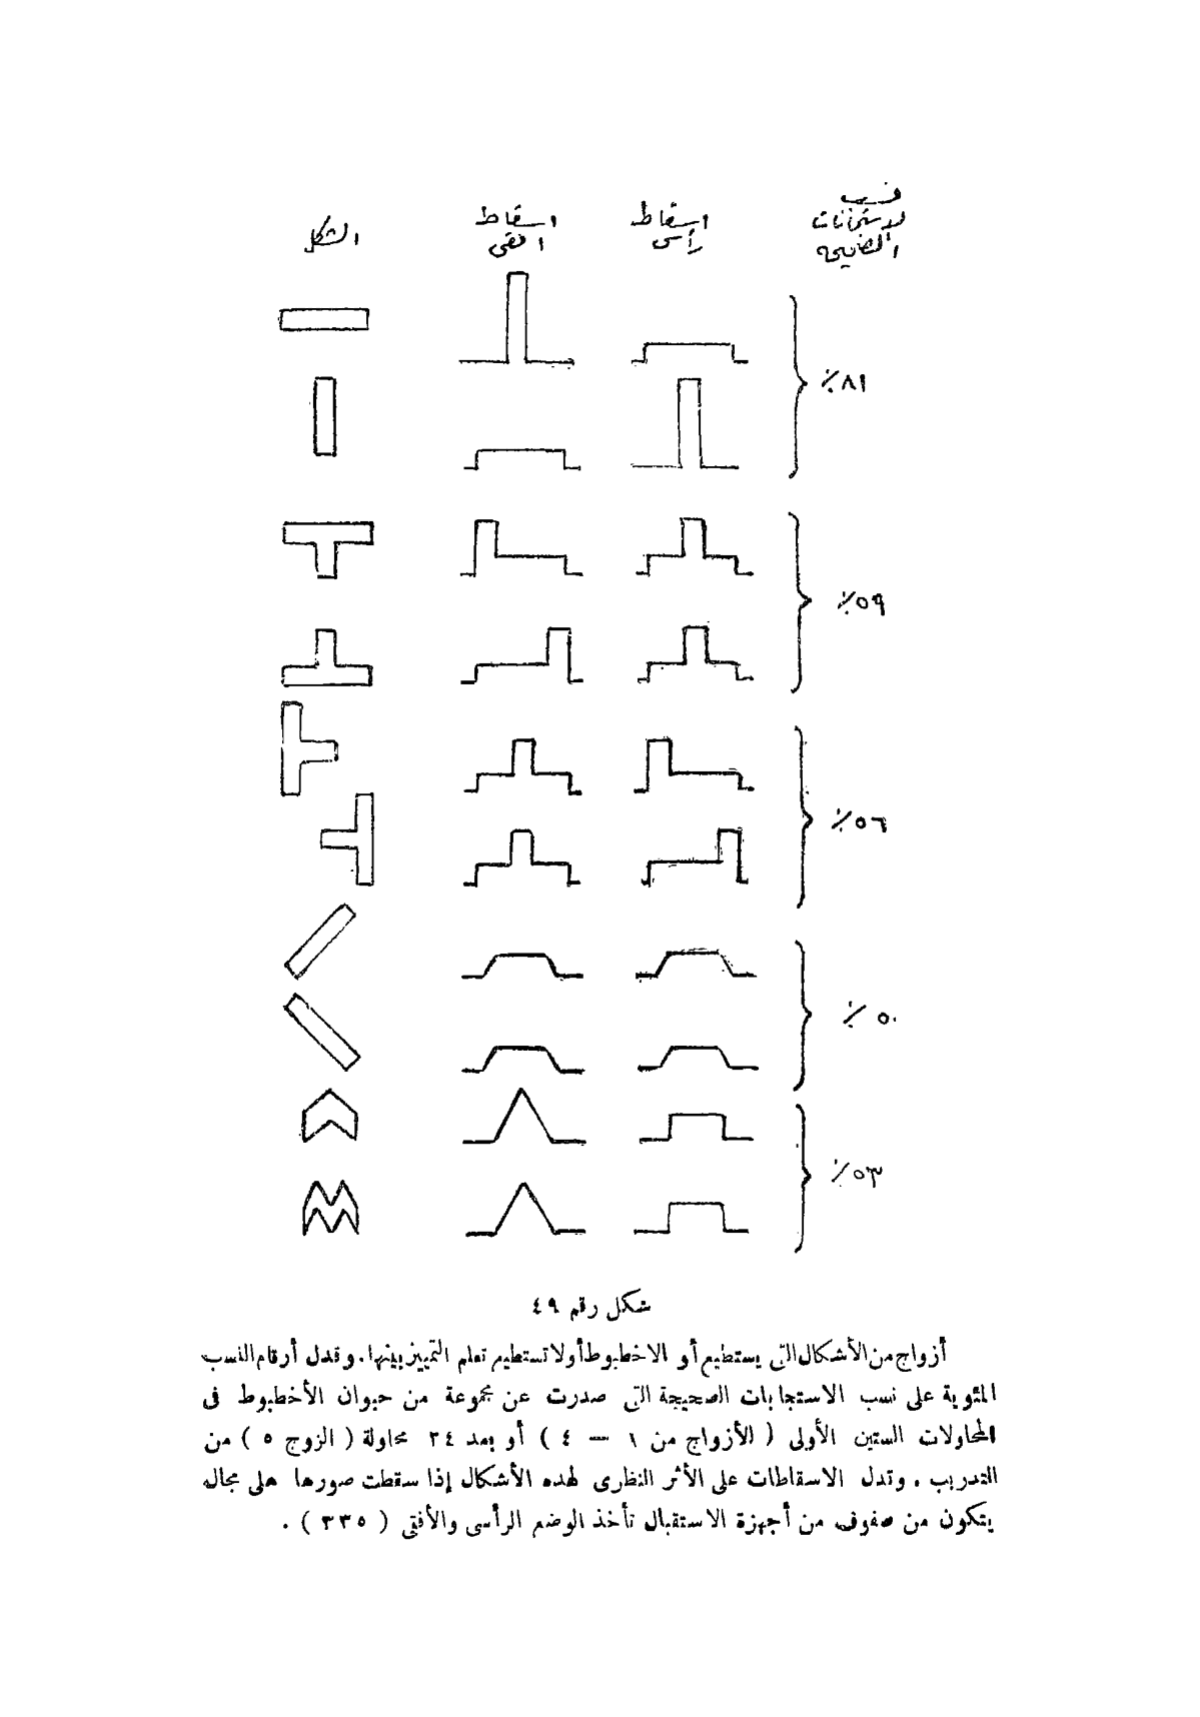 نسب
الاستجابات
الصحيحة
اسقاط
رأسى
اسقاط
افقى
الشكل
٪٨١
٪٥٩
٪٥٦
٪٥٠
٪٥٣
شكل رقم ٤٩
أزواج من الأشكال التى يستطيع أو الاخطبوط أو لا تستطيع تعلم التمييز بينها. وتدل أرقام النسب
المئوية على نسب الاستجابات الصحيحة التى صدرت عن مجموعة من حيوان الأخطبوط فى
المحاولات الستين الأولى ( الأزواج من ١ — ٤ ) أو بعد ٢٤ محاولة ( الزوج ٥ ) من
التدريب . وتدل الاسقاطات على الأثر النظرى لهذه الأشكال إذا سقطت صورها على مجال
يتكون من صفوف من أجهزة الاستقبال تأخذ الوضع الرأسى والأفقى ( ٣٣٥ ) .